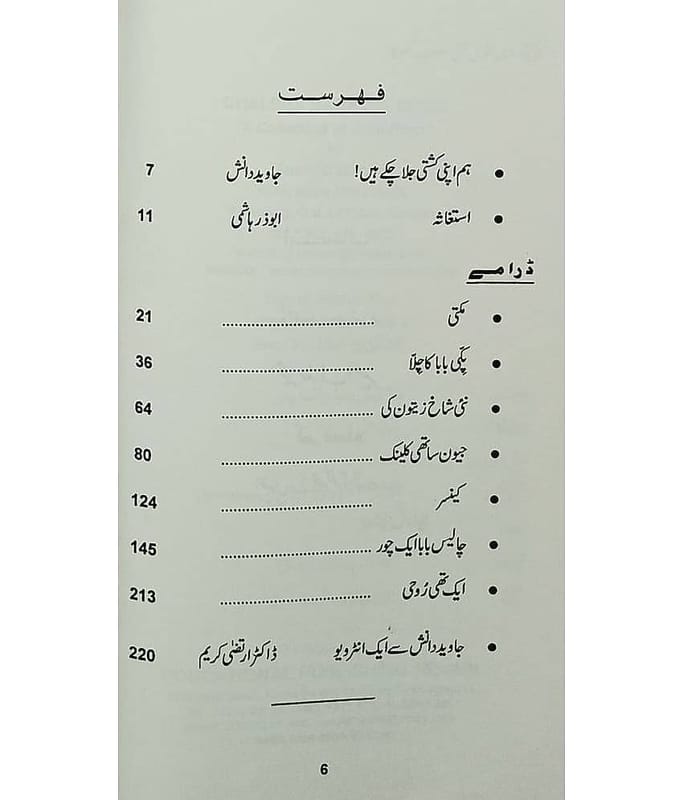 فہرست
ہم اپنی کشتی جلا چکے ہیں! جاوید دانش 7
استغاثہ ابوذر ہاشمی 11
ڈرامے
مکتی ........................ 21
پکّی بابا کا چلّا ........................ 36
نئی شاخ زیتون کی ........................ 64
جیون ساتھی کلینک ........................ 80
کینسر ........................ 124
چالیس بابا ایک چور ........................ 145
ایک تھی رُوحی ........................ 213
جاوید دانش سے ایک انٹرویو ڈاکٹر ارتضیٰ کریم 220
6